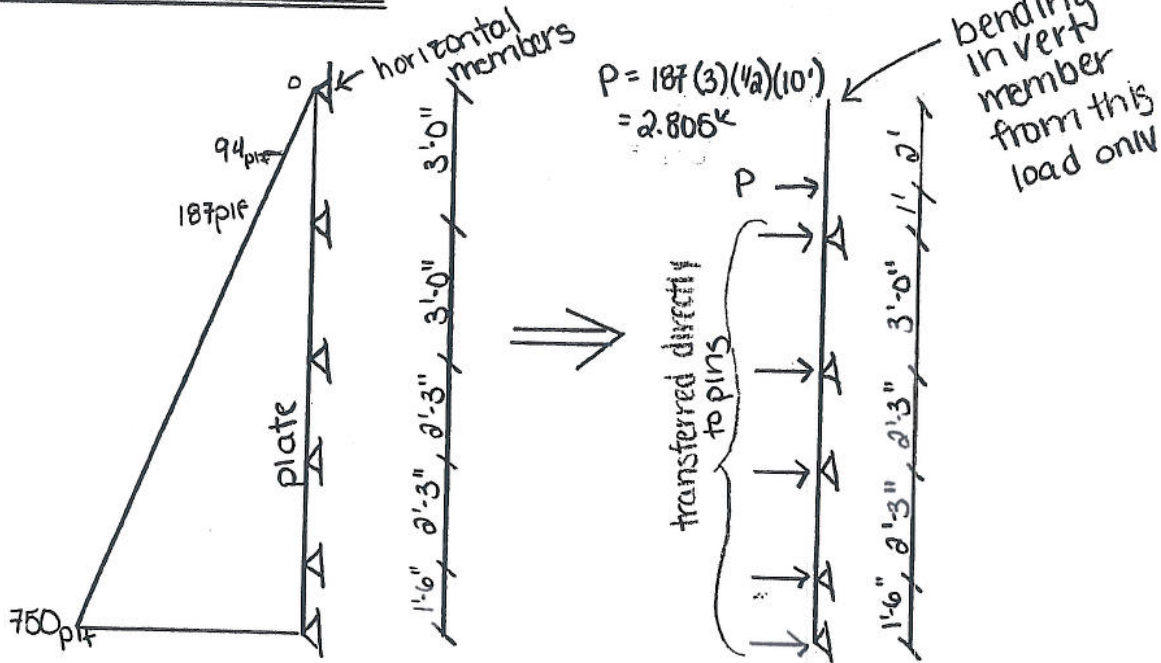 horizontal
members
0
94plf
187plf
750plf
plate
3'-0"
3'-0"
2'-3"
2'-3"
1'-6"
P = 187(3)(1/2)(10')
= 2.805k
bending
in vert
member
from this
load only
P
transferred directly
to pins
2'
1'
3'-0"
2'-3"
2'-3"
1'-6"